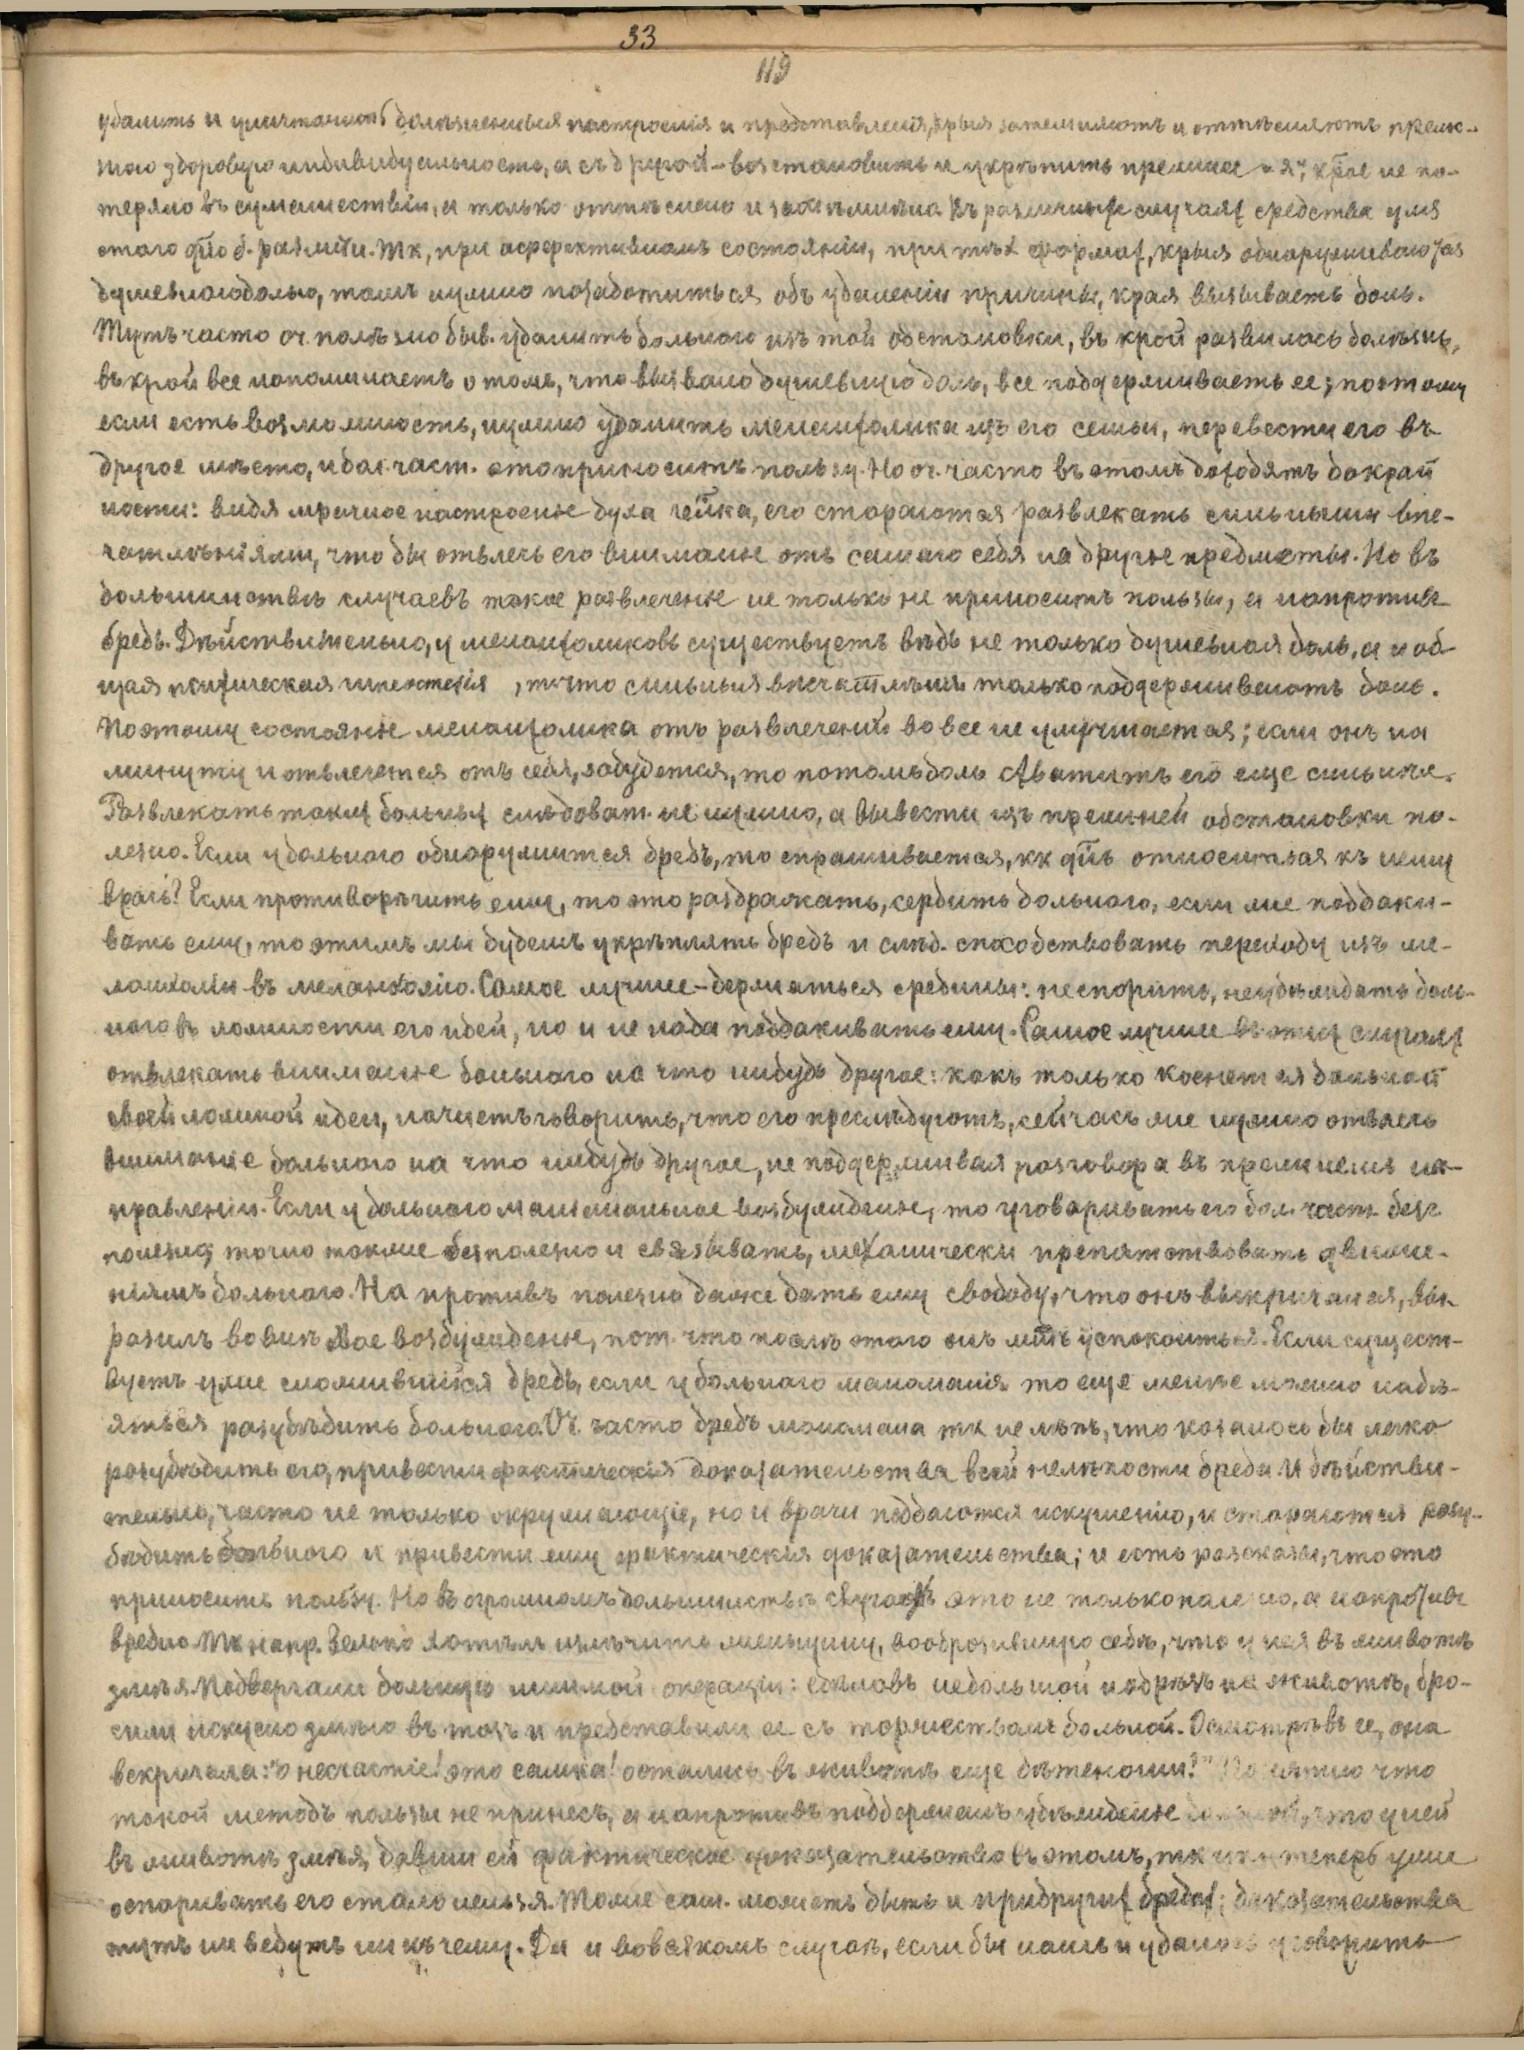 33
119
удалить и уничтожить болѣзненныя настроенія и представленія, крыя затемняютъ и оттѣсняютъ преж-
нюю здоровую индивидуальность, а съ другой – возстановить и укрѣпить прежнее „я“, крое не по-
теряно въ сумашествіи, а только оттѣснено и Въ различныхъ случаях средства для
этого б. различн. Тк, при аффективномъ состояніи, при тѣх формах, крыя обнаруживаются
душевною болью, тамъ нужно позаботиться объ удаленіи причины, края вызываетъ боль.
Тутъ часто оч. полѣзно быв. удалить больного изъ той обстановки, въ крой развилась болѣзнь,
въ крой все напоминаетъ о томъ, что вызвало душевную боль, все поддерживаетъ ее; поэтому
если есть возможность, нужно удалить меланхолика изъ его семьи, перевести его въ
другое мѣсто, и бол. част. это приноситъ пользу. Но оч. часто въ этомъ доходятъ до край
ности: видя мрачное настроенье духа челка, его стараются развлекать сильными впе-
чатлѣніями, что бы отвлечь его вниманье отъ самаго себя на другіе предметы. Но въ
большинствѣ случаевъ такое развлеченье не только не приноситъ пользы, а напротивъ
вредъ. Дѣйствительно, у меланхоликовъ существуетъ вѣдь не только душевная боль, а и об-
щая психическая гиперэстезія, тк что сильныя впечатлѣнія только поддерживаютъ боль.
Поэтому состоянье меланхолика отъ развлеченій вовсе не улучшается; если онъ на
минутку и отвлечется отъ себя, забудется, то потомъ боль схватитъ его еще сильнѣе.
Развлекать таких больных слѣдоват. не нужно, а вывести изъ прежней обстановки по-
лезно. Если у больного обнаружится бредъ, то спрашивается, кк относиться къ нему
врачъ? Если противорѣчить ему, то это раздражать, сердить больного, если же поддаки-
вать ему, то этимъ мы будемъ укрѣплять бредъ и слѣд. способствовать переходу изъ ме-
ланхоліи въ Самое лучшее – держаться средины: не спорить, не убѣждать боль-
ного въ ложности его идей, но и не надо поддакивать ему. Самое лучшее въ этих случаях
отвлекать вниманье больного на что нибудь другое: какъ только коснется больной
своей ложной идеи, начнетъ говорить, что его преслѣдуютъ, сейчасъ же нужно отвлечь
вниманіе больного на что нибудь другое, не поддерживая разговора въ прежнемъ на-
правленіи. Если у больного маніакальное возбужденье, то уговаривать его бол. част. без-
полезно, точно также безполезно и связывать, механически препятствовать движе-
ніямъ больного. На противъ полезно даже дать ему свободу, что онъ выкричался, вы-
разилъ вовнѣ свое возбужденье, пот. что послѣ этого онъ мтъ успокоиться. Если сущест-
вуетъ уже сложившійся бредъ, если у больного мономанія то еще менѣе можно надѣ-
яться разубѣдить больного. Оч. часто бредъ мономана тк нелѣпъ, что казалось бы легко
разубѣдить его, привести фактическія доказательства всей нелѣпости бреда. И дѣйстви-
тельно, часто не только окружающіе, но и врачи поддаются искушенію, и стараются разу-
бѣдить больного и привести ему фактическія доказательства; и есть разсказы, что это
приноситъ пользу. Но въ огромномъ большинствѣ случаевъ это не только полезно, а напротивъ
вредно. Тк напр. хотѣли излѣчить женщину, вообразившую себѣ, что у нея въ животѣ
змѣя. Подвергали больную мнимой операціи: сдѣлавъ небольшой надрѣзъ на животѣ, бро-
сили искусно змѣю въ тазъ и представили ее съ торжествомъ больной. Осмотрѣвъ ее, она
вскричала: „о несчастіе! это самка! остались въ животѣ еще дѣтеныши!“ Понятно что
такой методъ пользы не принесъ, а напротивъ поддержалъ убѣжденье больной, что у ней
въ животѣ змѣя, давши ей фактическое доказательство въ этомъ, тк что теперь уже
оспаривать его стало нельзя. Тоже сам. можетъ быть и при других бредах; доказательства
тутъ не ведутъ ни къ чему. Да и во всякомъ случаѣ, если бы намъ и удалось уговорить